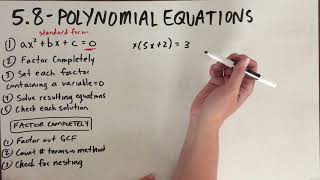 5.8-POLYNOMIAL EQUATIONS
standard form
① ax² + bx + c = 0
② Factor Completely
③ Set each factor
containing a variable=0
④ Solve resulting equations
⑤ Check each solution
FACTOR COMPLETELY
① Factor out GCF
② Count # terms → method
③ Check for nesting
x(5x+2) = 3